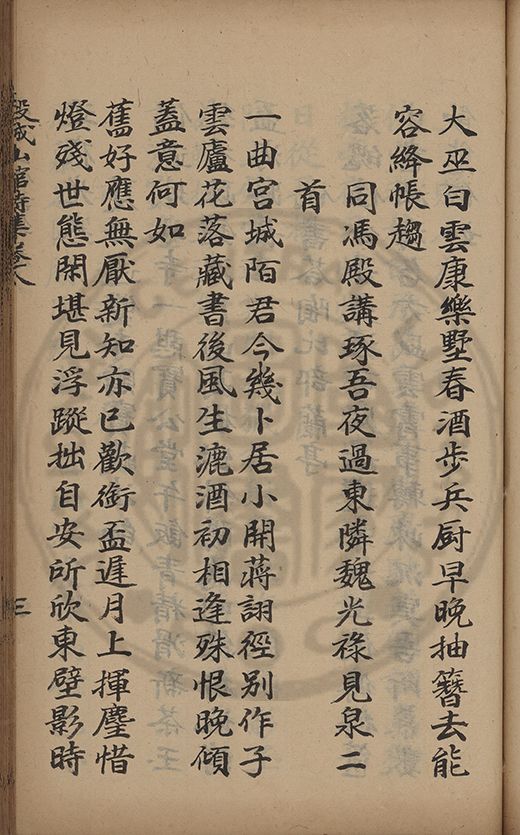 大巫白雲康樂墅春酒步兵厨早晚抽簪去能
容絳帳趨
同馮殿講琢吾夜過東隣魏光祿見泉二
首
一曲宮城陌君今幾卜居小開蔣詡徑別作子
雲廬花落藏書後風生漉酒初相逢殊恨晚傾
蓋意何如
舊好應無厭新知亦已歡銜盃遲月上揮麈惜
燈殘世態閑堪見浮蹤拙自安所欣東壁影時
穀城山館詩集卷八
三